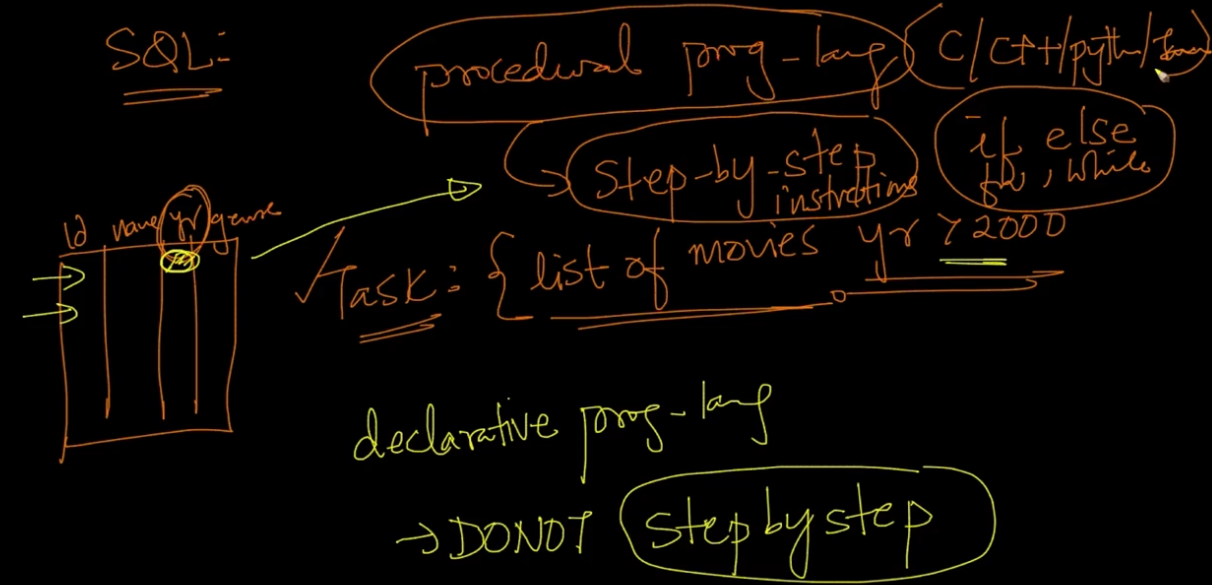 SQL:
procedural prog-lang (C/C++/pyth/Java)
Step-by-step instrctions
if else
for, while
Id name yr genre
Task: {list of movies yr > 2000
declarative prog-lang
→ DO NOT step by step